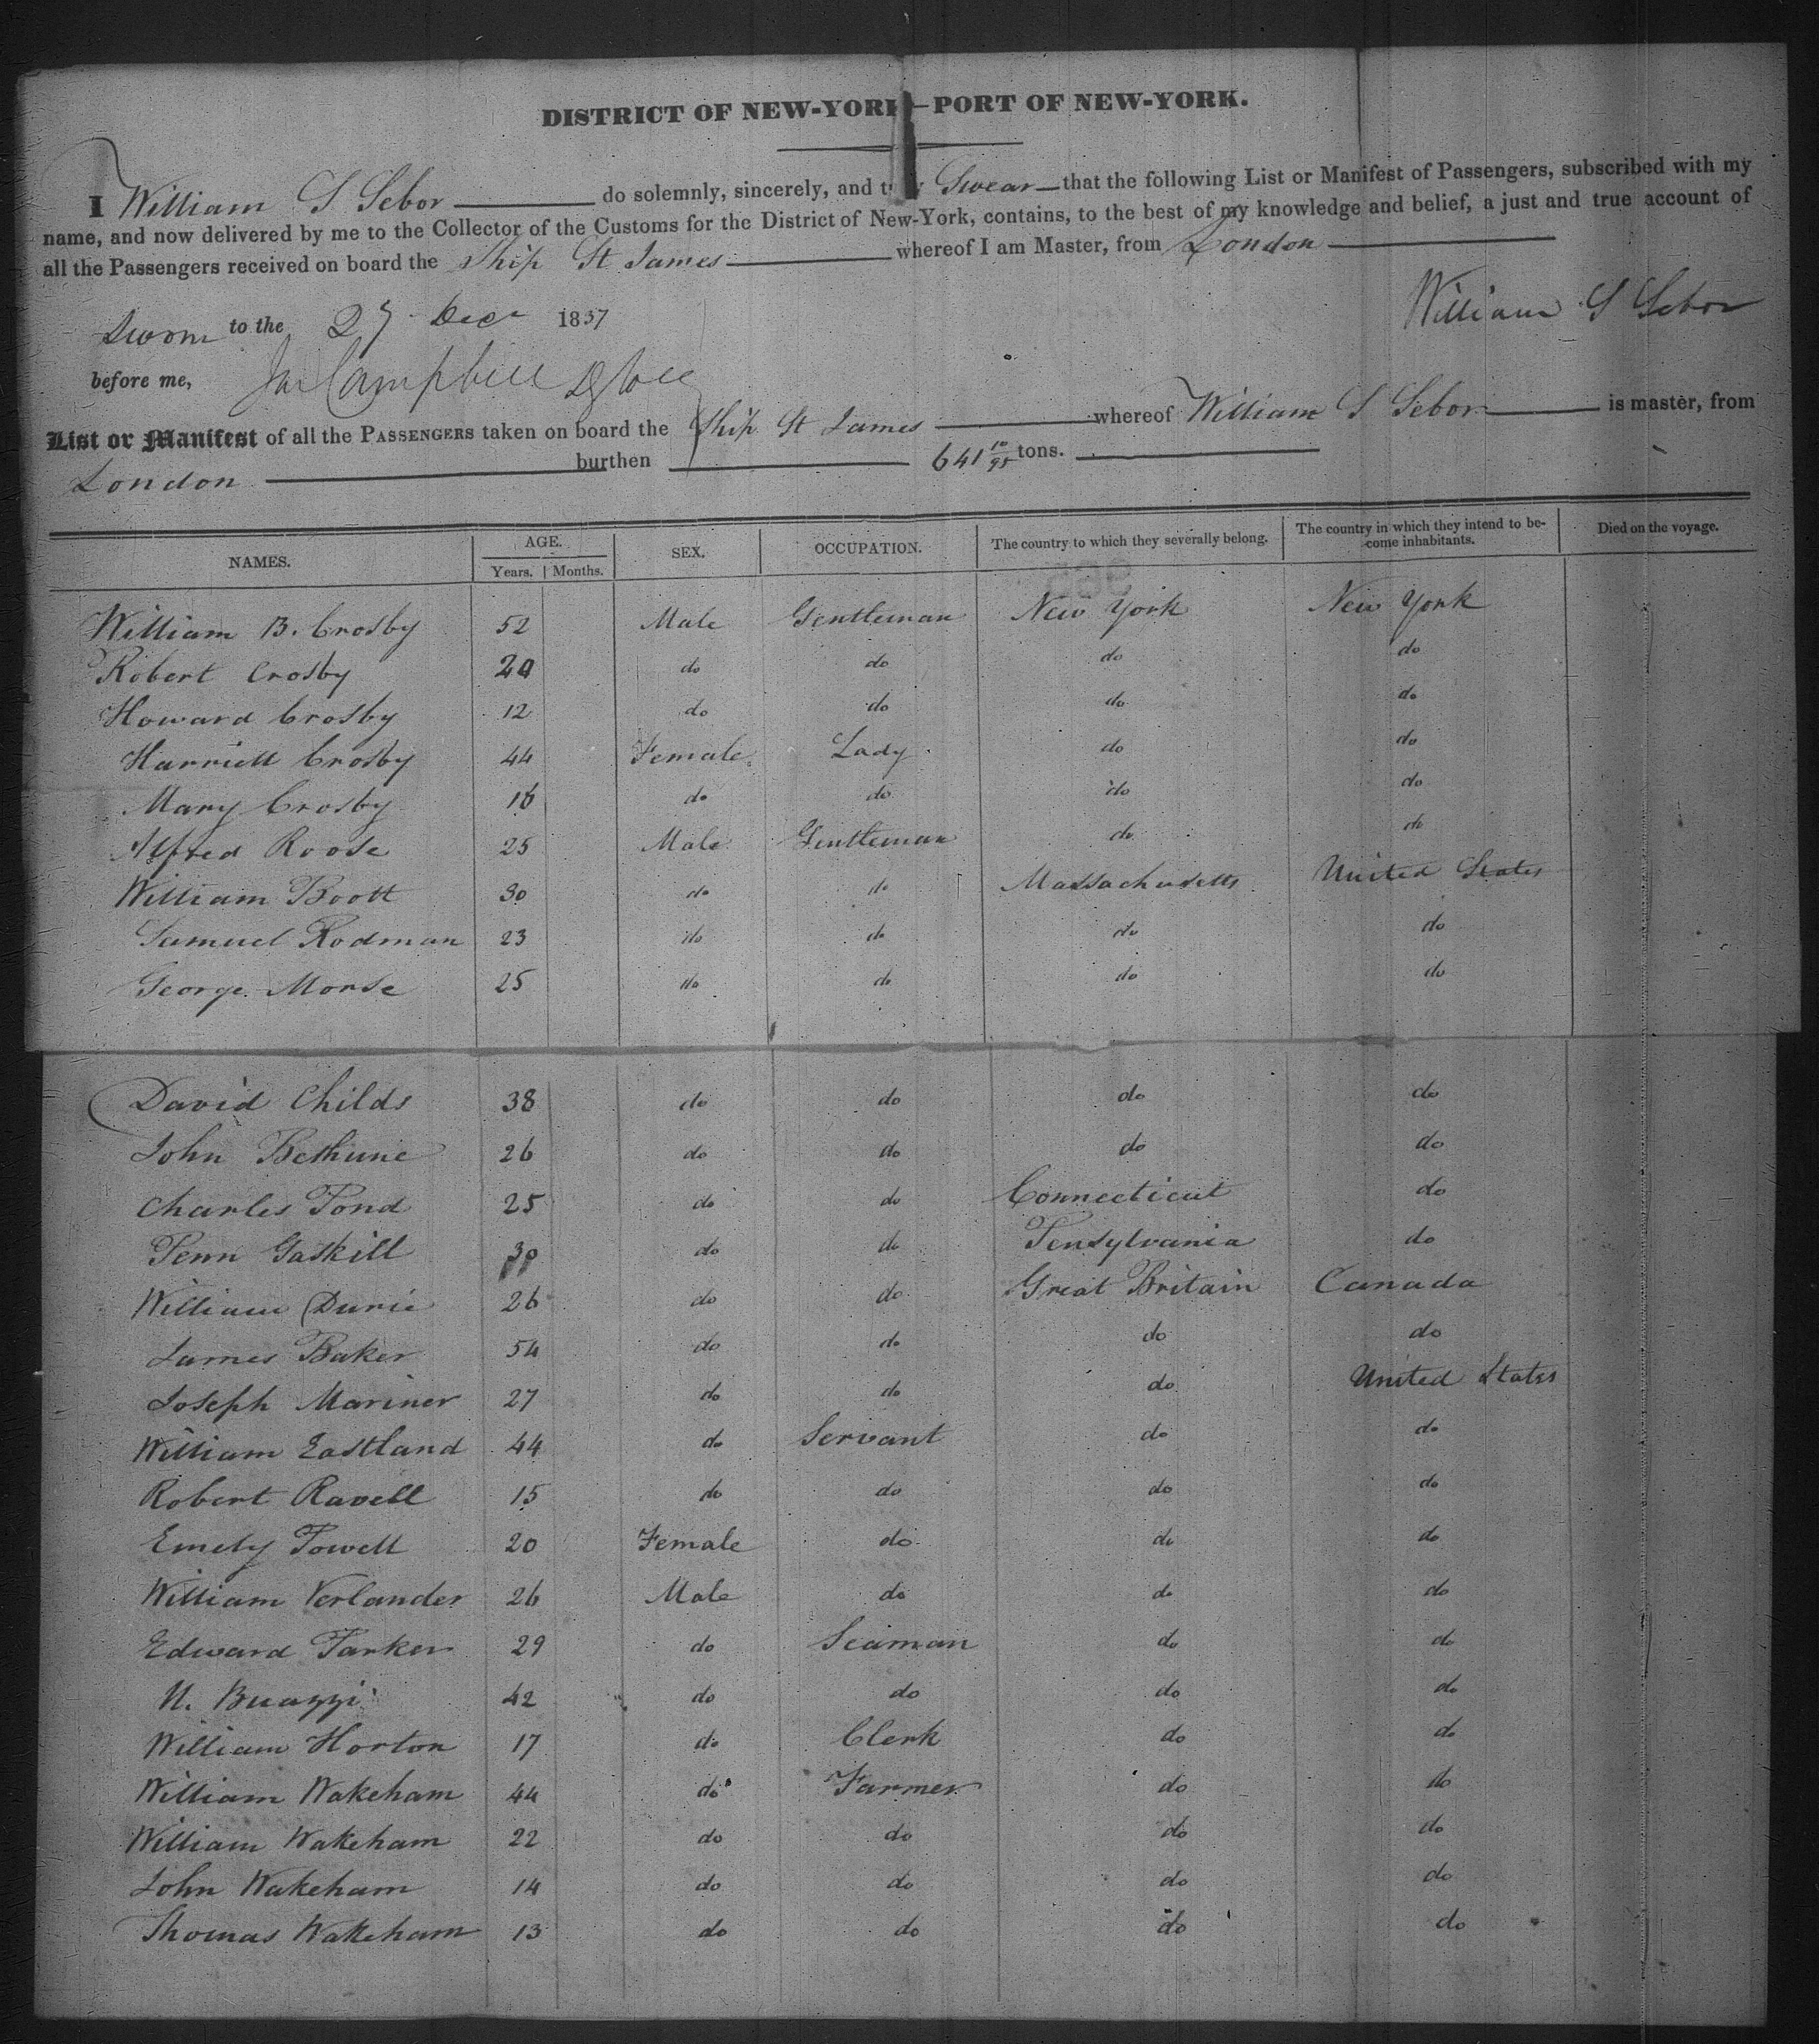 DISTRICT OF NEW-YORK—PORT OF NEW-YORK.
I William S Sebor do solemnly, sincerely, and truly Swear that the following List or Manifest of Passengers, subscribed with my
name, and now delivered by me to the Collector of the Customs for the District of New-York, contains, to the best of my knowledge and belief, a just and true account of
all the Passengers received on board the Ship St James whereof I am Master, from London
William S Sebor
Sworn to the 27 Decr 1837
before me, Campbell
List or Manifest of all the PASSENGERS taken on board the Ship St James whereof William S Sebor is master, from
London burthen 641 10/95 tons.
NAMES. AGE. Years. Months. SEX. OCCUPATION. The country to which they severally belong. The country in which they intend to become inhabitants. Died on the voyage.
William B. Crosby 52 Male Gentleman New York New York
Robert Crosby do do do do
Howard Crosby 12 do do do do
Harriett Crosby 44 Female Lady do do
Mary Crosby 16 do do do do
Alfred Roose 25 Male Gentleman do do
William Boott 30 do do Massachusetts United States
Samuel Rodman 23 do do do do
George Morse 25 do do do do
David Childs 38 do do do do
John Bethune 26 do do do do
Charles Pond 25 do do Connecticut do
Penn Gaskill 30 do do Pensylvania do
William Durie 26 do do Great Britain Canada
James Baker 54 do do do do
Joseph Mariner 27 do do do United States
William Eastland 44 do Servant do do
Robert Ravell 15 do do do do
Emely Powell 20 Female do do do
William Verlander 26 Male do do do
Edward Parker 29 do Seaman do do
N. Buazzi 42 do do do do
William Horton 17 do Clerk do do
William Wakeham 44 do Farmer do do
William Wakeham 22 do do do do
John Wakeham 14 do do do do
Thomas Wakeham 13 do do do do